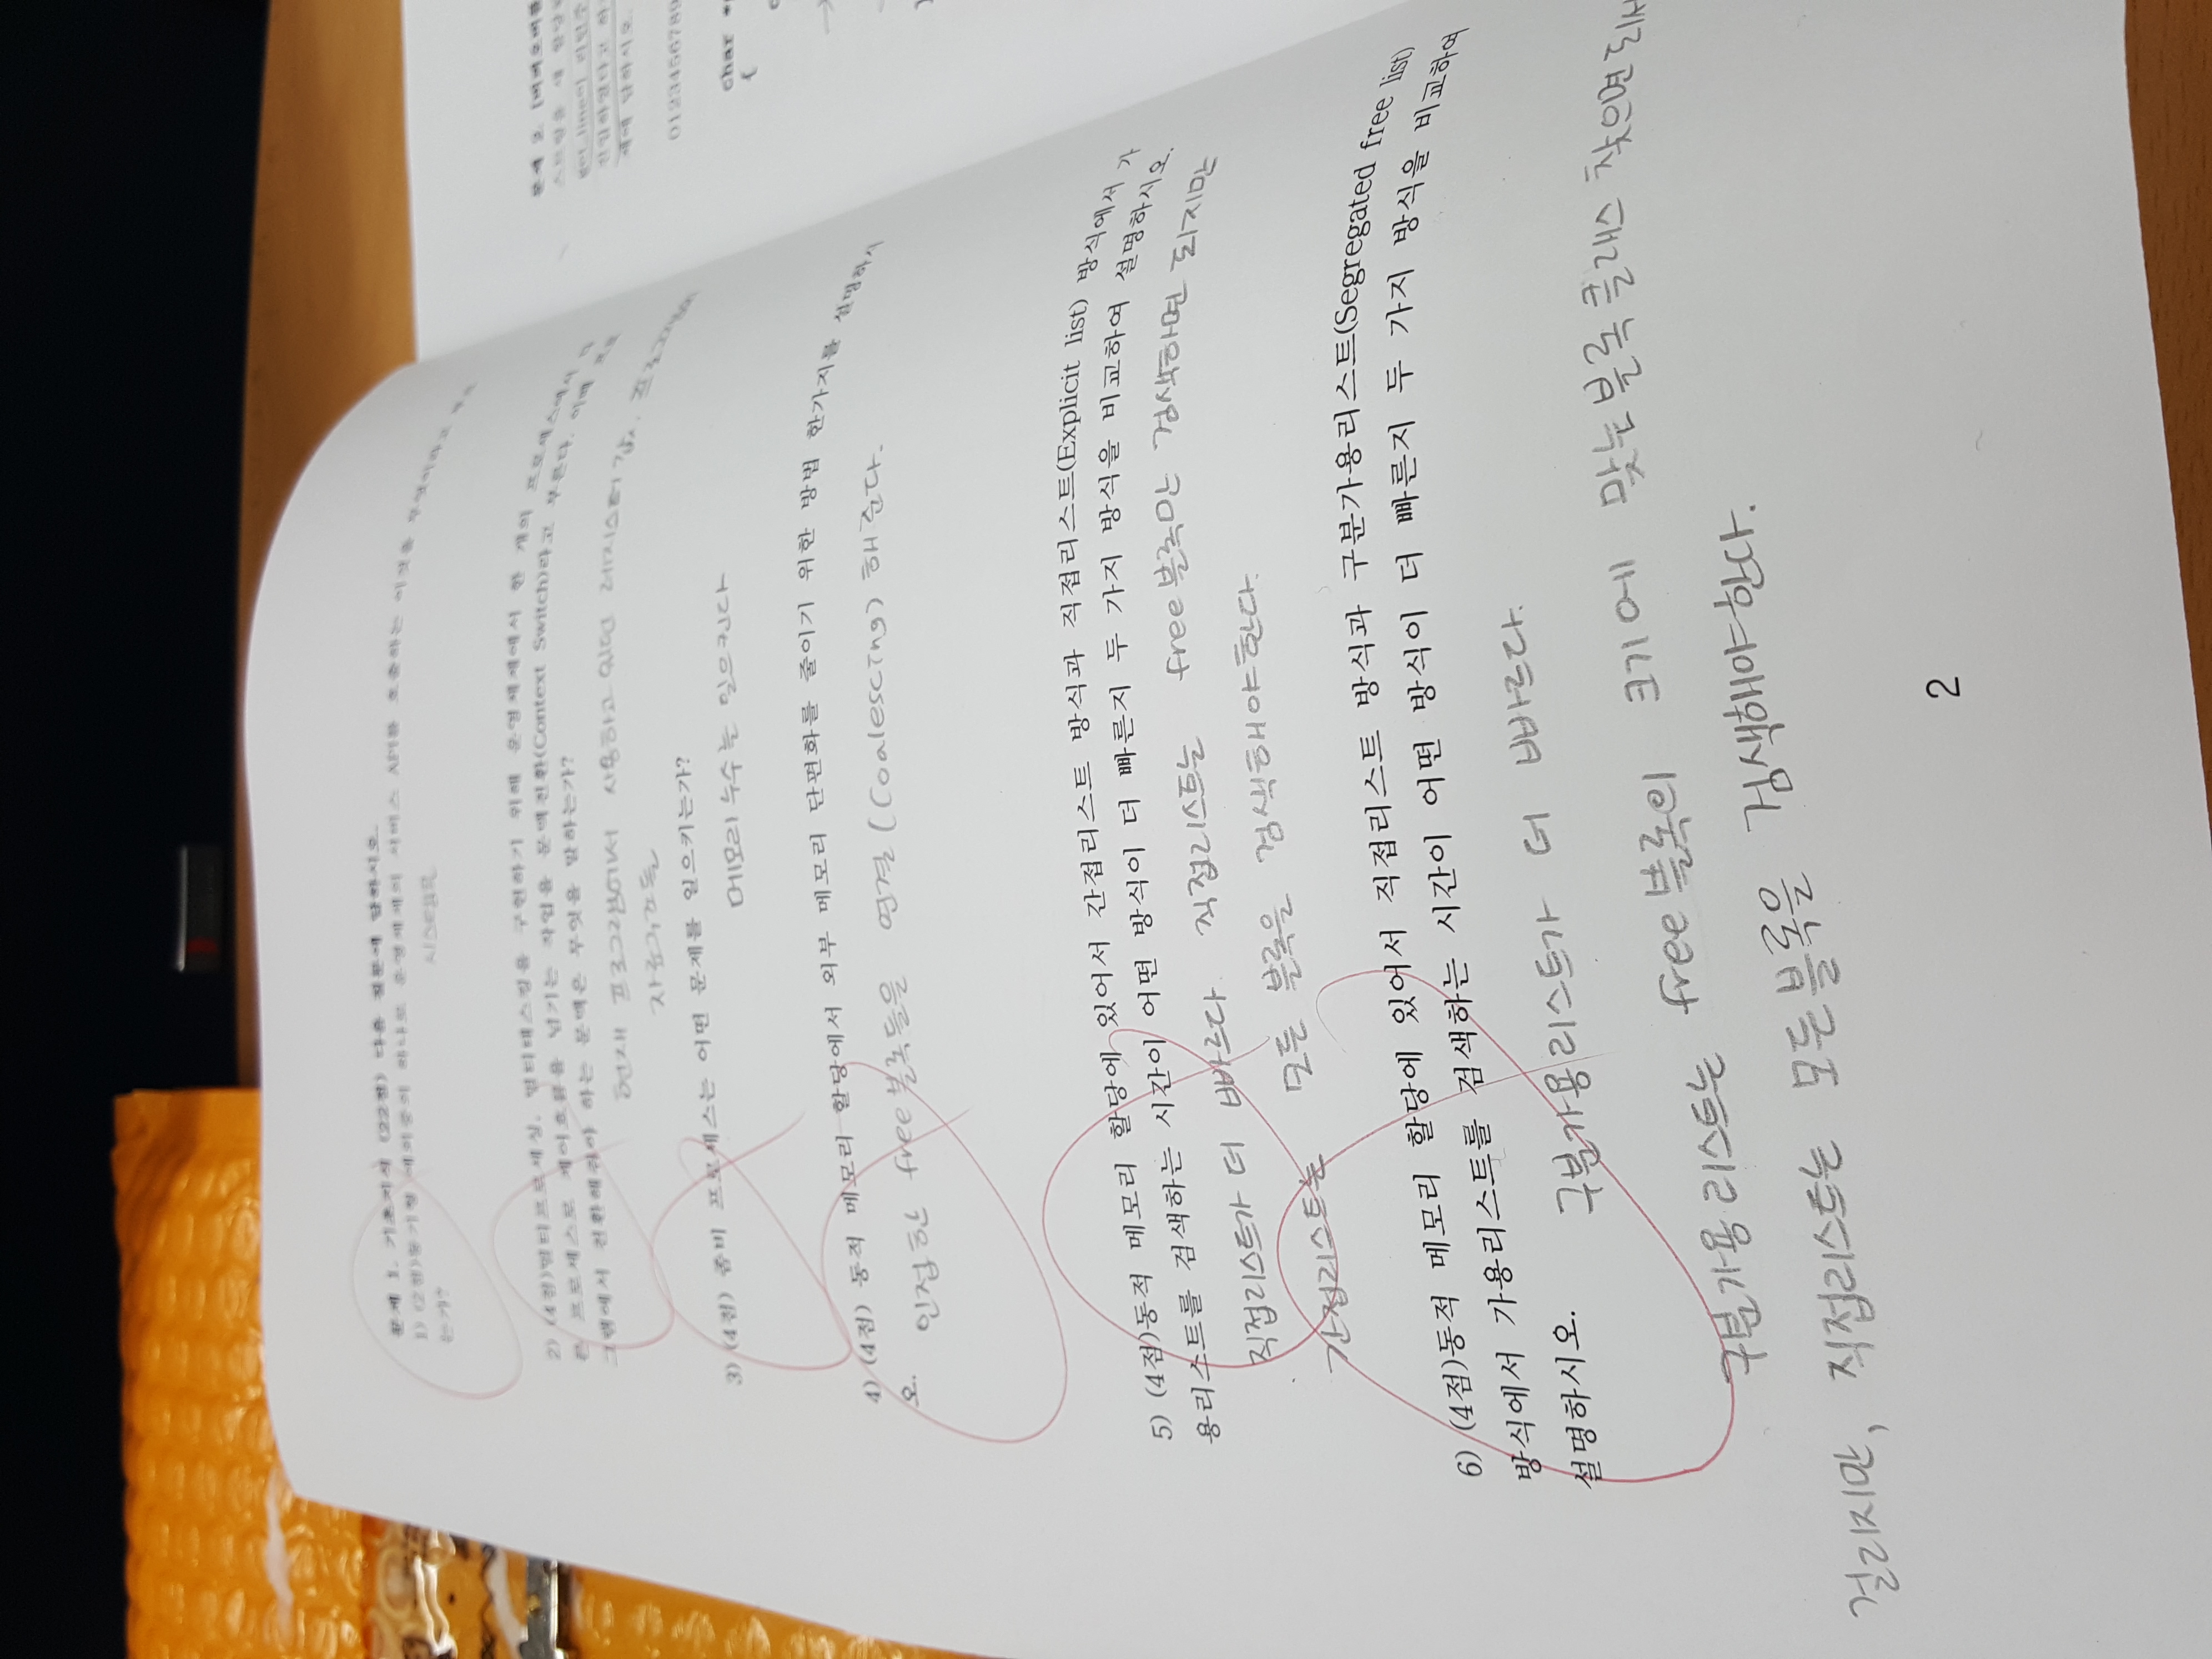 문제 1. 기초지식 (22점) 다음 질문에 답하시오.
1) (2점)동기형 예외중의 하나로 운영체제의 서비스 API를 호출하는 이것을 무엇이라고 부르
는가?
시스템콜
2) (4점)멀티프로세싱, 멀티태스킹을 구현하기 위해 운영체제에서 한 개의 프로세스에서 다
른 프로세스로 제어흐름을 넘기는 작업을 문맥전환(Context Switch)라고 부른다. 이때 프로
그램에서 전환해줘야 하는 문맥은 무엇을 말하는가?
현재 프로그램에서 사용하고 있던 레지스터 값,
자료구조들
3) (4점) 좀비 프로세스는 어떤 문제를 일으키는가?
메모리 누수를 일으킨다
4) (4점) 동적 메모리 할당에서 외부 메모리 단편화를 줄이기 위한 방법 한가지를 설명하시
오.
인접한 free 블록들을 연결 (Coalescing) 해준다.
5) (4점)동적 메모리 할당에 있어서 간접리스트 방식과 직접리스트(Explicit list) 방식에서 가
용리스트를 검색하는 시간이 어떤 방식이 더 빠른지 두 가지 방식을 비교하여 설명하시오.
직접리스트가 더 빠르다. 직접리스트는 free 블록만 검색하면 되지만
간접리스트는 모든 블록을 검색해야한다.
6) (4점)동적 메모리 할당에 있어서 직접리스트 방식과 구분가용리스트(Segregated free list)
방식에서 가용리스트를 검색하는 시간이 어떤 방식이 더 빠른지 두 가지 방식을 비교하여
설명하시오.
구분가용리스트가 더 빠르다.
구분가용리스트는 free 블록의 크기에 맞는 블록 클래스 찾으면 되서
걸리지만, 직접리스트는 모든 블록을 검색해야한다.
2
문제 2. [버퍼오버플
스트링을 새 할당
get_line이 리턴
진입하였다고 하
제에 답하시오.
0123456789
char *
{